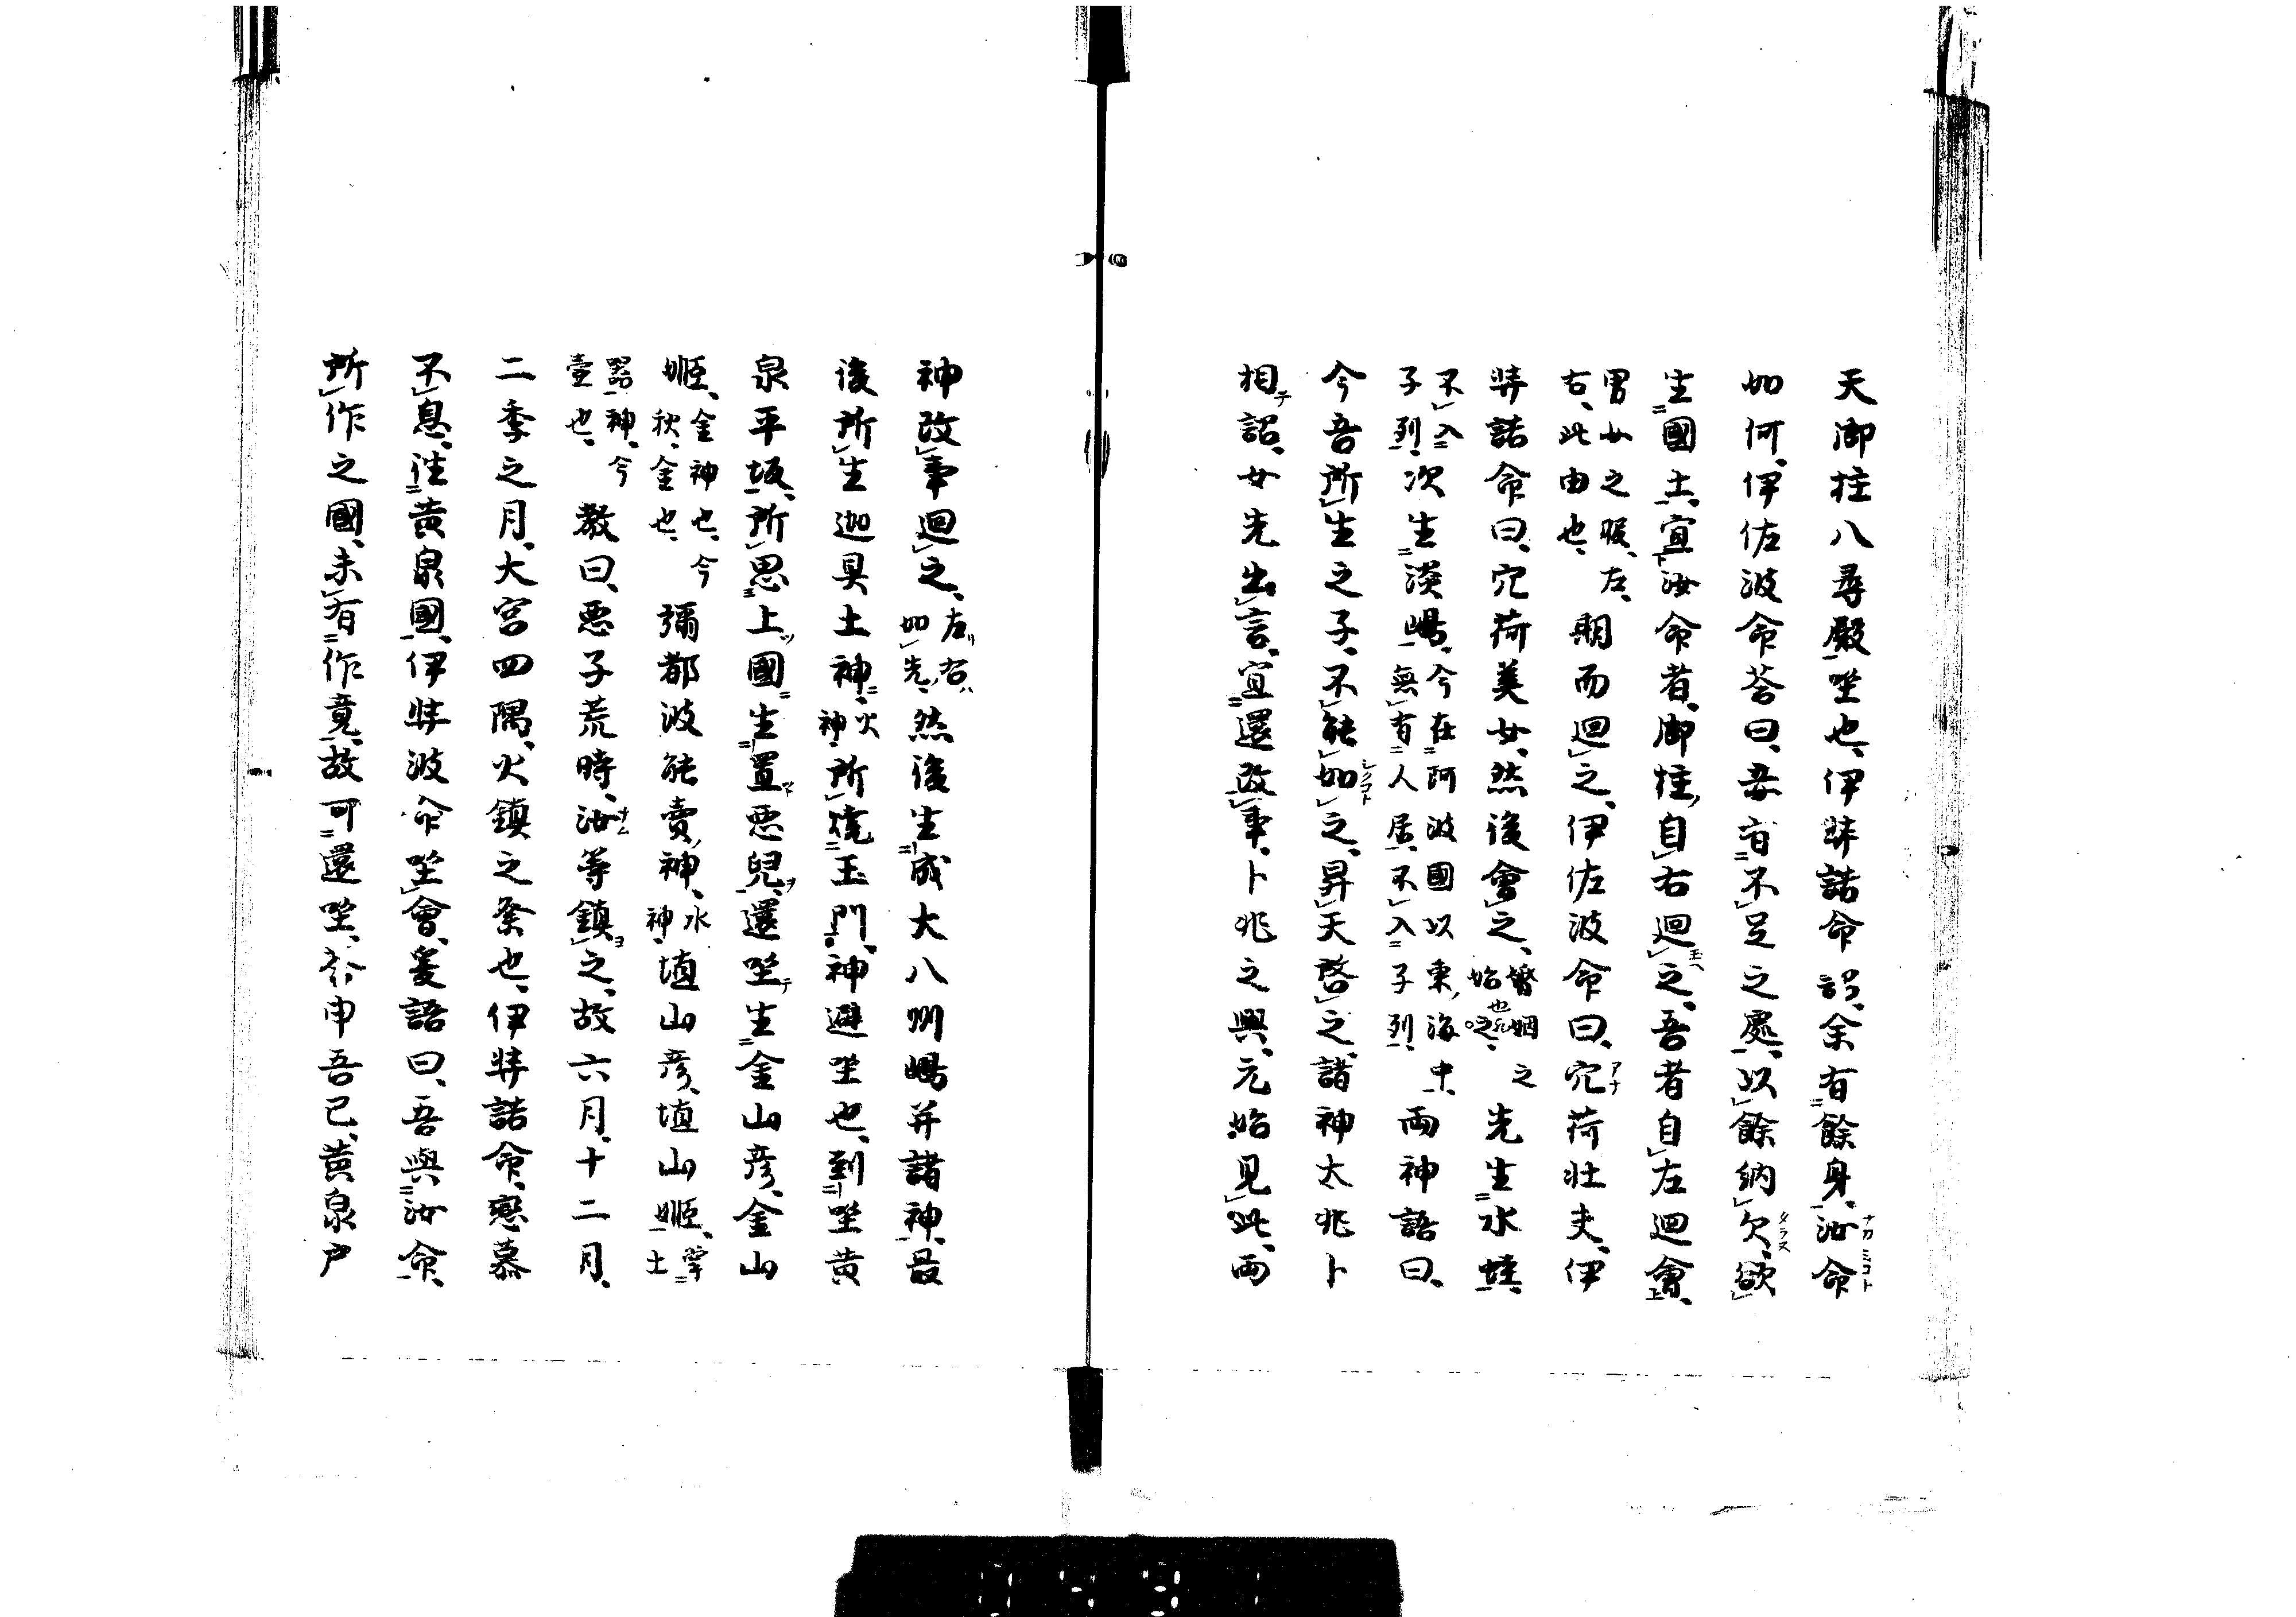 天御柱八尋殿坐也、伊弉諾命詔、余有餘身、汝命
如何、伊佐波命荅曰、吾有不足之處、以餘納欠、欲
生國土、宜汝命者、御柱、自右迴之、吾者自左迴會、
男女之服、左、右、此由也、期而迴之、伊佐波命曰、穴荷壮夫、伊
弉諾命曰、穴荷美女、然後會之、婚姻之始也 先生水蛭、
不入子列、次生淡嶋、今在阿波國以東、海中、無有人居、不入子列、両神語曰、
今吾所生之子、不能如之、昇天啓之、諸神太兆卜
相詔、女先出言、宜還改事、卜兆之興、元始見此、両
神改事迴之、左右如先、然後生成大八州嶋并諸神、最
後所生迦具土神、火神、所燒玉門、神避坐也、到坐黄
泉平坂、所思上國生置悪兒、還坐生金山彦、金山
姬、金神也、今秋、金也、彌都波能賣神、水神、埴山彦、埴山姬、掌土
器神、今壹也、教曰、悪子荒時、汝等鎮之、故六月、十二月、
二季之月、大宮四隅、火鎮之祭也、伊弉諾命、戀慕
不息、往黄泉國、伊弉波命坐會、爰語曰、吾與汝命、
所作之國、未有作竟、故可還坐、荅申吾已、黄泉戸